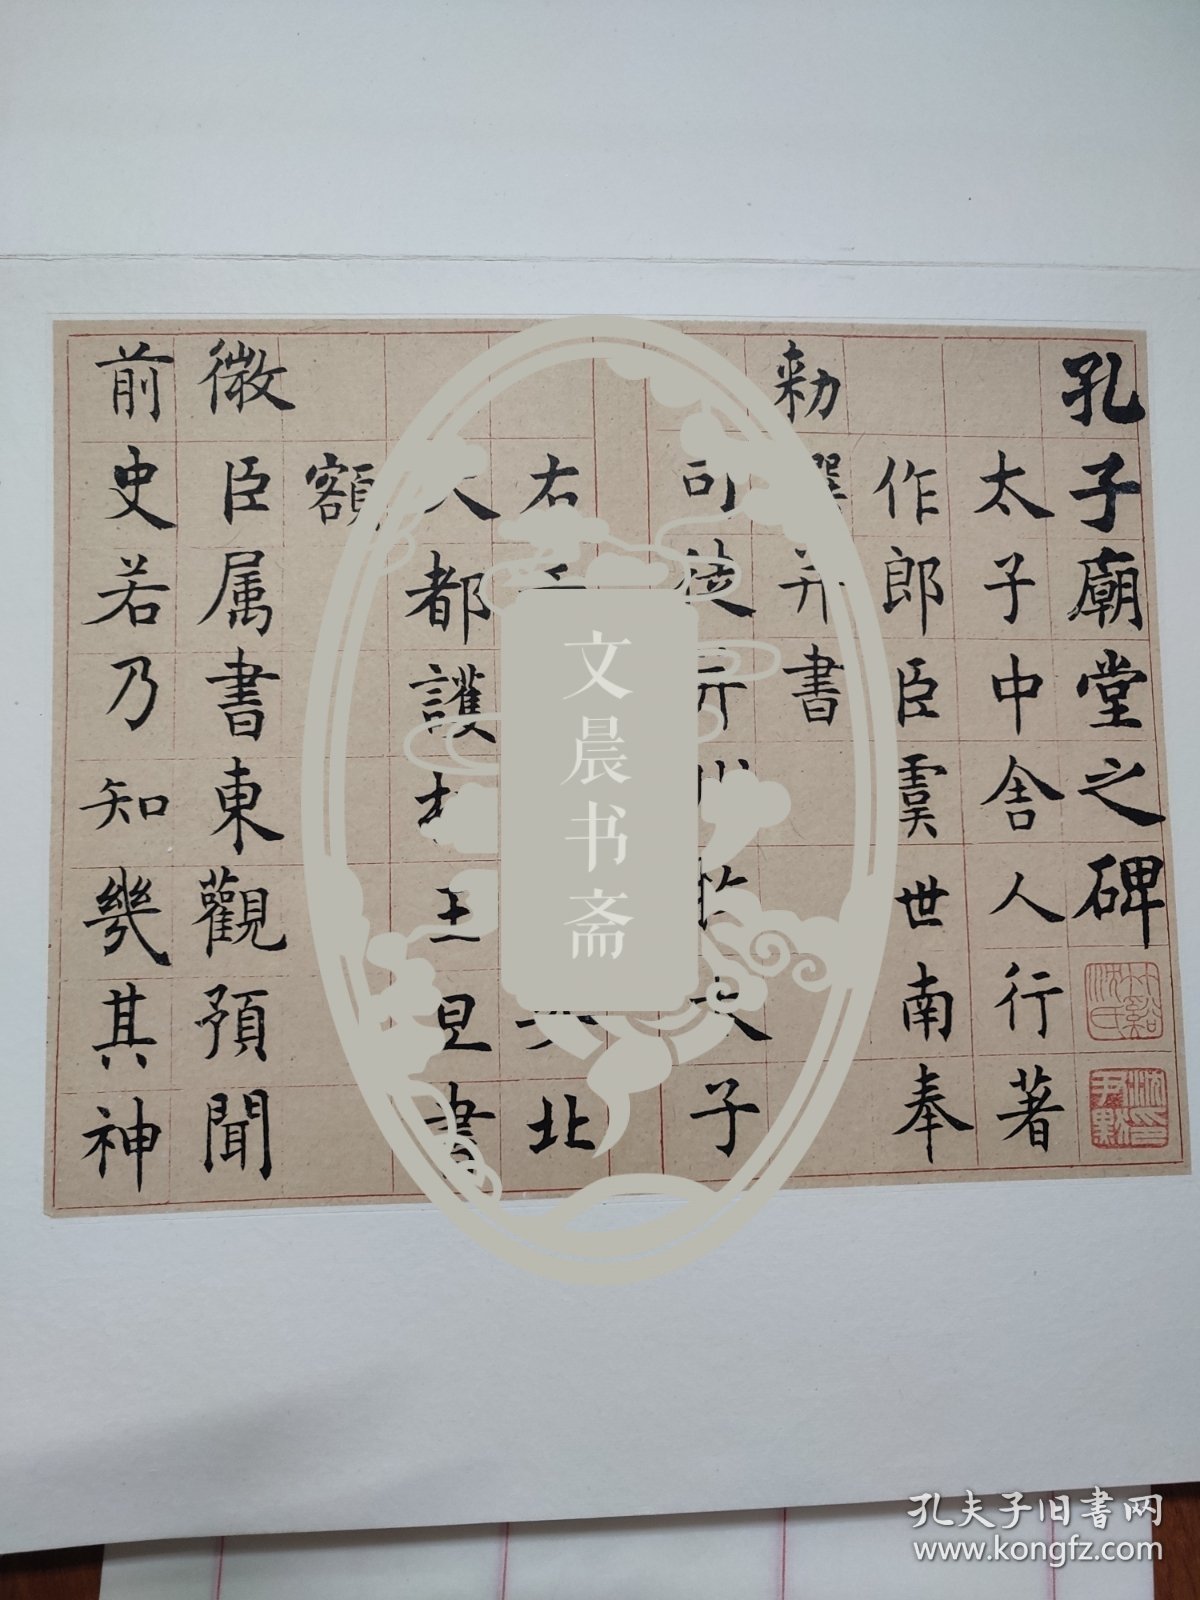 孔子廟堂之碑
太子中舍人行著
作郎臣虞世南奉
勑撰并書
司徒并州牧太子
右
北
大都護相王旦書
額
微臣属書東觀預聞
前史若乃知幾其神
文晨书斋
孔夫子旧書网
www.kongfz.com